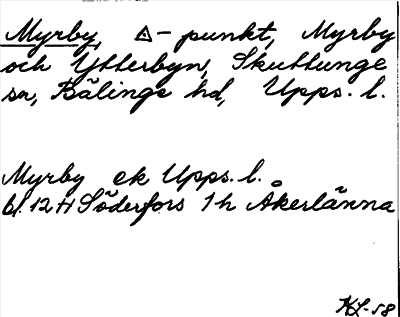 Myrby, △- punkt, Myrby
och Ytterbyn, Skuttunge
sn, Bälinge hd, Upps. l.
Myrby ek Upps. l.
bl. 12 H Söderfors 1h Åkerlänna
KL-58